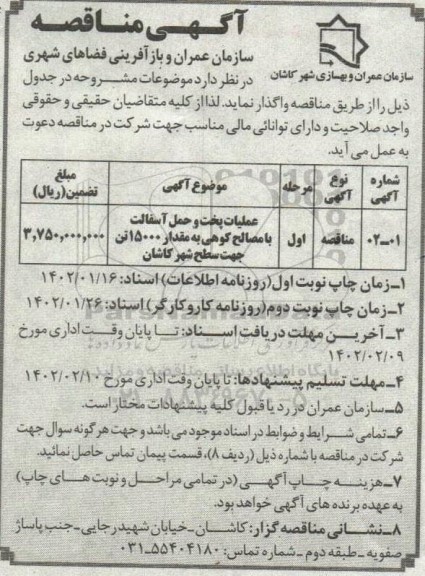 آگهی مناقصه
سازمان عمران و بازآفرینی فضاهای شهری
سازمان عمران و بهسازی شهر کاشان
در نظر دارد موضوعات مشروحه در جدول
ذیل را از طریق مناقصه واگذار نماید. لذا از کلیه متقاضیان حقیقی و حقوقی
واجد صلاحیت و دارای توانائی مالی مناسب جهت شرکت در مناقصه دعوت
به عمل می آید.
شماره آگهی | نوع آگهی | مرحله | موضوع آگهی | مبلغ تضمین (ریال)
۰۲-۰۱ | مناقصه | اول | عملیات پخت و حمل آسفالت با مصالح کوهی به مقدار ۱۵۰۰۰ تن جهت سطح شهر کاشان | ۳,۷۵۰,۰۰۰,۰۰۰
۱-زمان چاپ نوبت اول (روزنامه اطلاعات) اسناد: ۱۴۰۲/۰۱/۱۶
۲-زمان چاپ نوبت دوم (روزنامه کار و کارگر) اسناد: ۱۴۰۲/۰۱/۲۶
۳-آخرین مهلت دریافت اسناد: تا پایان وقت اداری مورخ
۱۴۰۲/۰۲/۰۹
۴-مهلت تسلیم پیشنهادها: تا پایان وقت اداری مورخ ۱۴۰۲/۰۲/۱۰
۵-سازمان عمران در رد یا قبول کلیه پیشنهادات مختار است.
۶-تمامی شرایط و ضوابط در اسناد موجود می باشد و جهت هرگونه سوال جهت
شرکت در مناقصه با شماره ذیل (ردیف ۸)، قسمت پیمان تماس حاصل نمائید.
۷-هزینه چاپ آگهی (در تمامی مراحل و نوبت های چاپ)
به عهده برنده های آگهی خواهد بود.
۸-نشانی مناقصه گزار: کاشان-خیابان شهید رجایی-جنب پاساژ
صفویه-طبقه دوم-شماره تماس: ۰۳۱-۵۵۴۰۴۱۸۰